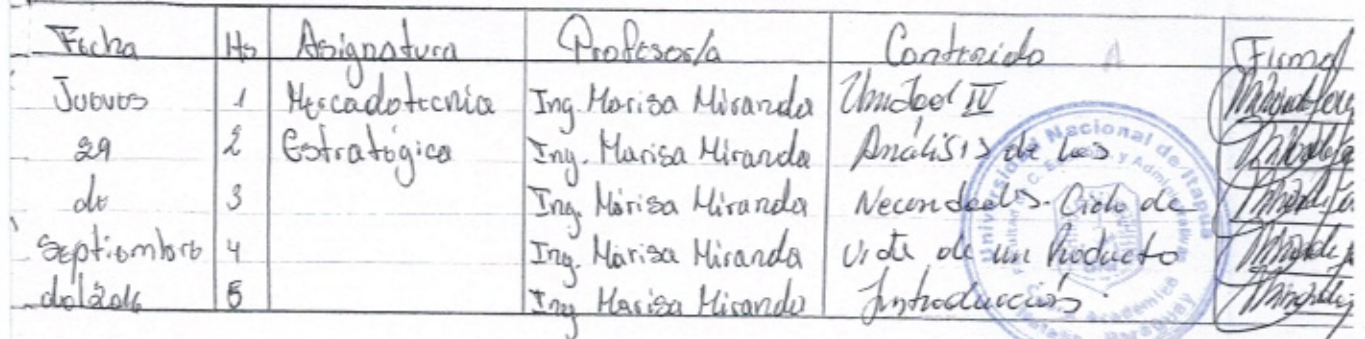 Fecha Hs Asignatura Profesor/a Contenido Firma
Jueves 1 Mercadotecnia Ing. Marisa Miranda Unidad IV
29 2 Estratégica Ing. Marisa Miranda Análisis de las
de 3 Ing. Marisa Miranda Necesidades. Ciclo de
Septiembre 4 Ing. Marisa Miranda vida de un Producto
del 2016 5 Ing. Marisa Miranda Introducción.
Universidad Nacional de Itapúa